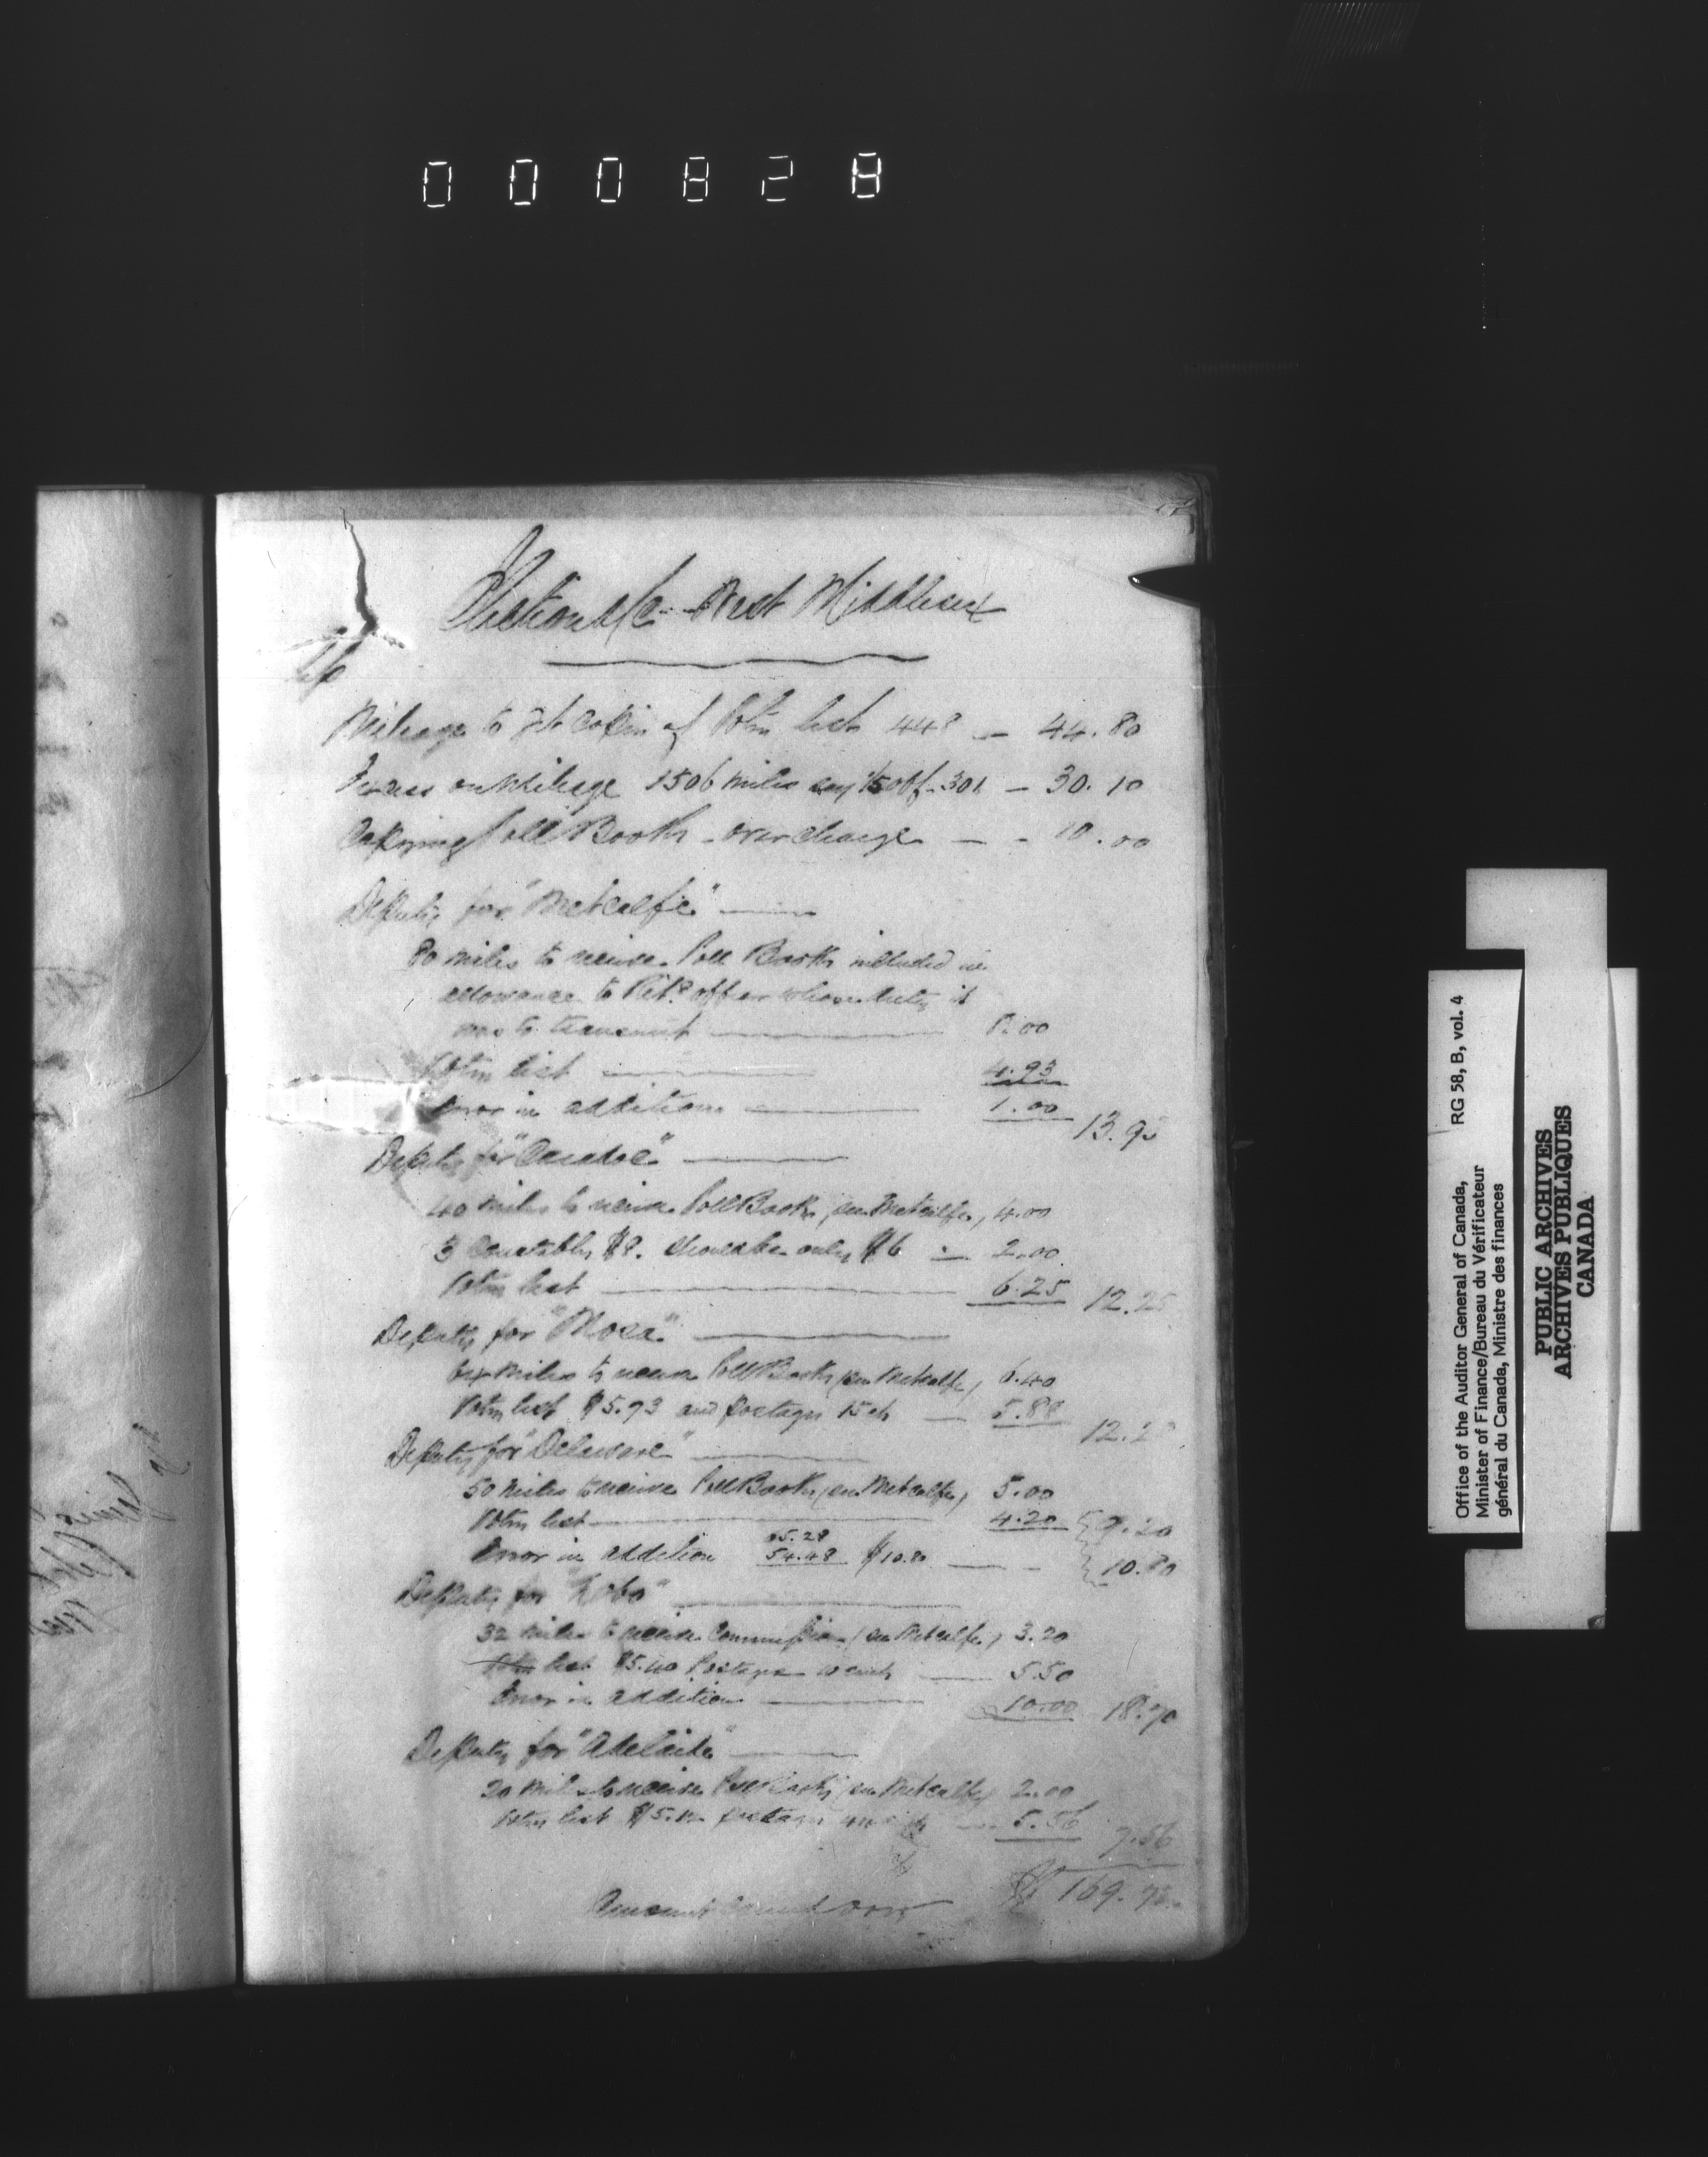 000828
Election a/c West Middlesex
Mileage to get copies of Voters list 448 — 44.80
Excess on Mileage 1506 miles say — 30.10
Copying Poll Books - overcharge — - 10.00
Deputy for "Metcalfe" —
80 miles to receive Poll Books included in
allowance to Retg officer whose duty it
was to transmit — 8.00
Voters list — 4.93
Error in addition — 1.00
13.93
Deputy for "Caradoc" —
40 miles to receive Poll Book, (see Metcalfe) 4.00
3 Constables $8. should be only $6 — 2.00
Voters list — 6.25 12.25
Deputy for "Mosa" —
64 miles to receive Poll Books (see Metcalfe) 6.40
Voters list $5.73 and postages 15 cts — 5.88
12.28
Deputy for "Delaware" —
50 miles to receive Poll Books (see Metcalfe) 5.00
Voters list — 4.20 9.20
Error in addition 54.48 $10.80 — - 10.80
Deputy for "Lobo" —
32 miles to receive Commission (see Metcalfe) 3.20
Voters list $5.40 Postages 10 cents — 5.50
Error in addition — 10.00 18.70
Deputy for "Adelaide" —
20 miles to receive Poll Books (see Metcalfe) 2.00
Voters list postages — 5.56 7.56
Amount $169.
Office of the Auditor General of Canada, RG 58, B, vol. 4
Minister of Finance/Bureau du Vérificateur
général du Canada, Ministre des finances
PUBLIC ARCHIVES
ARCHIVES PUBLIQUES
CANADA